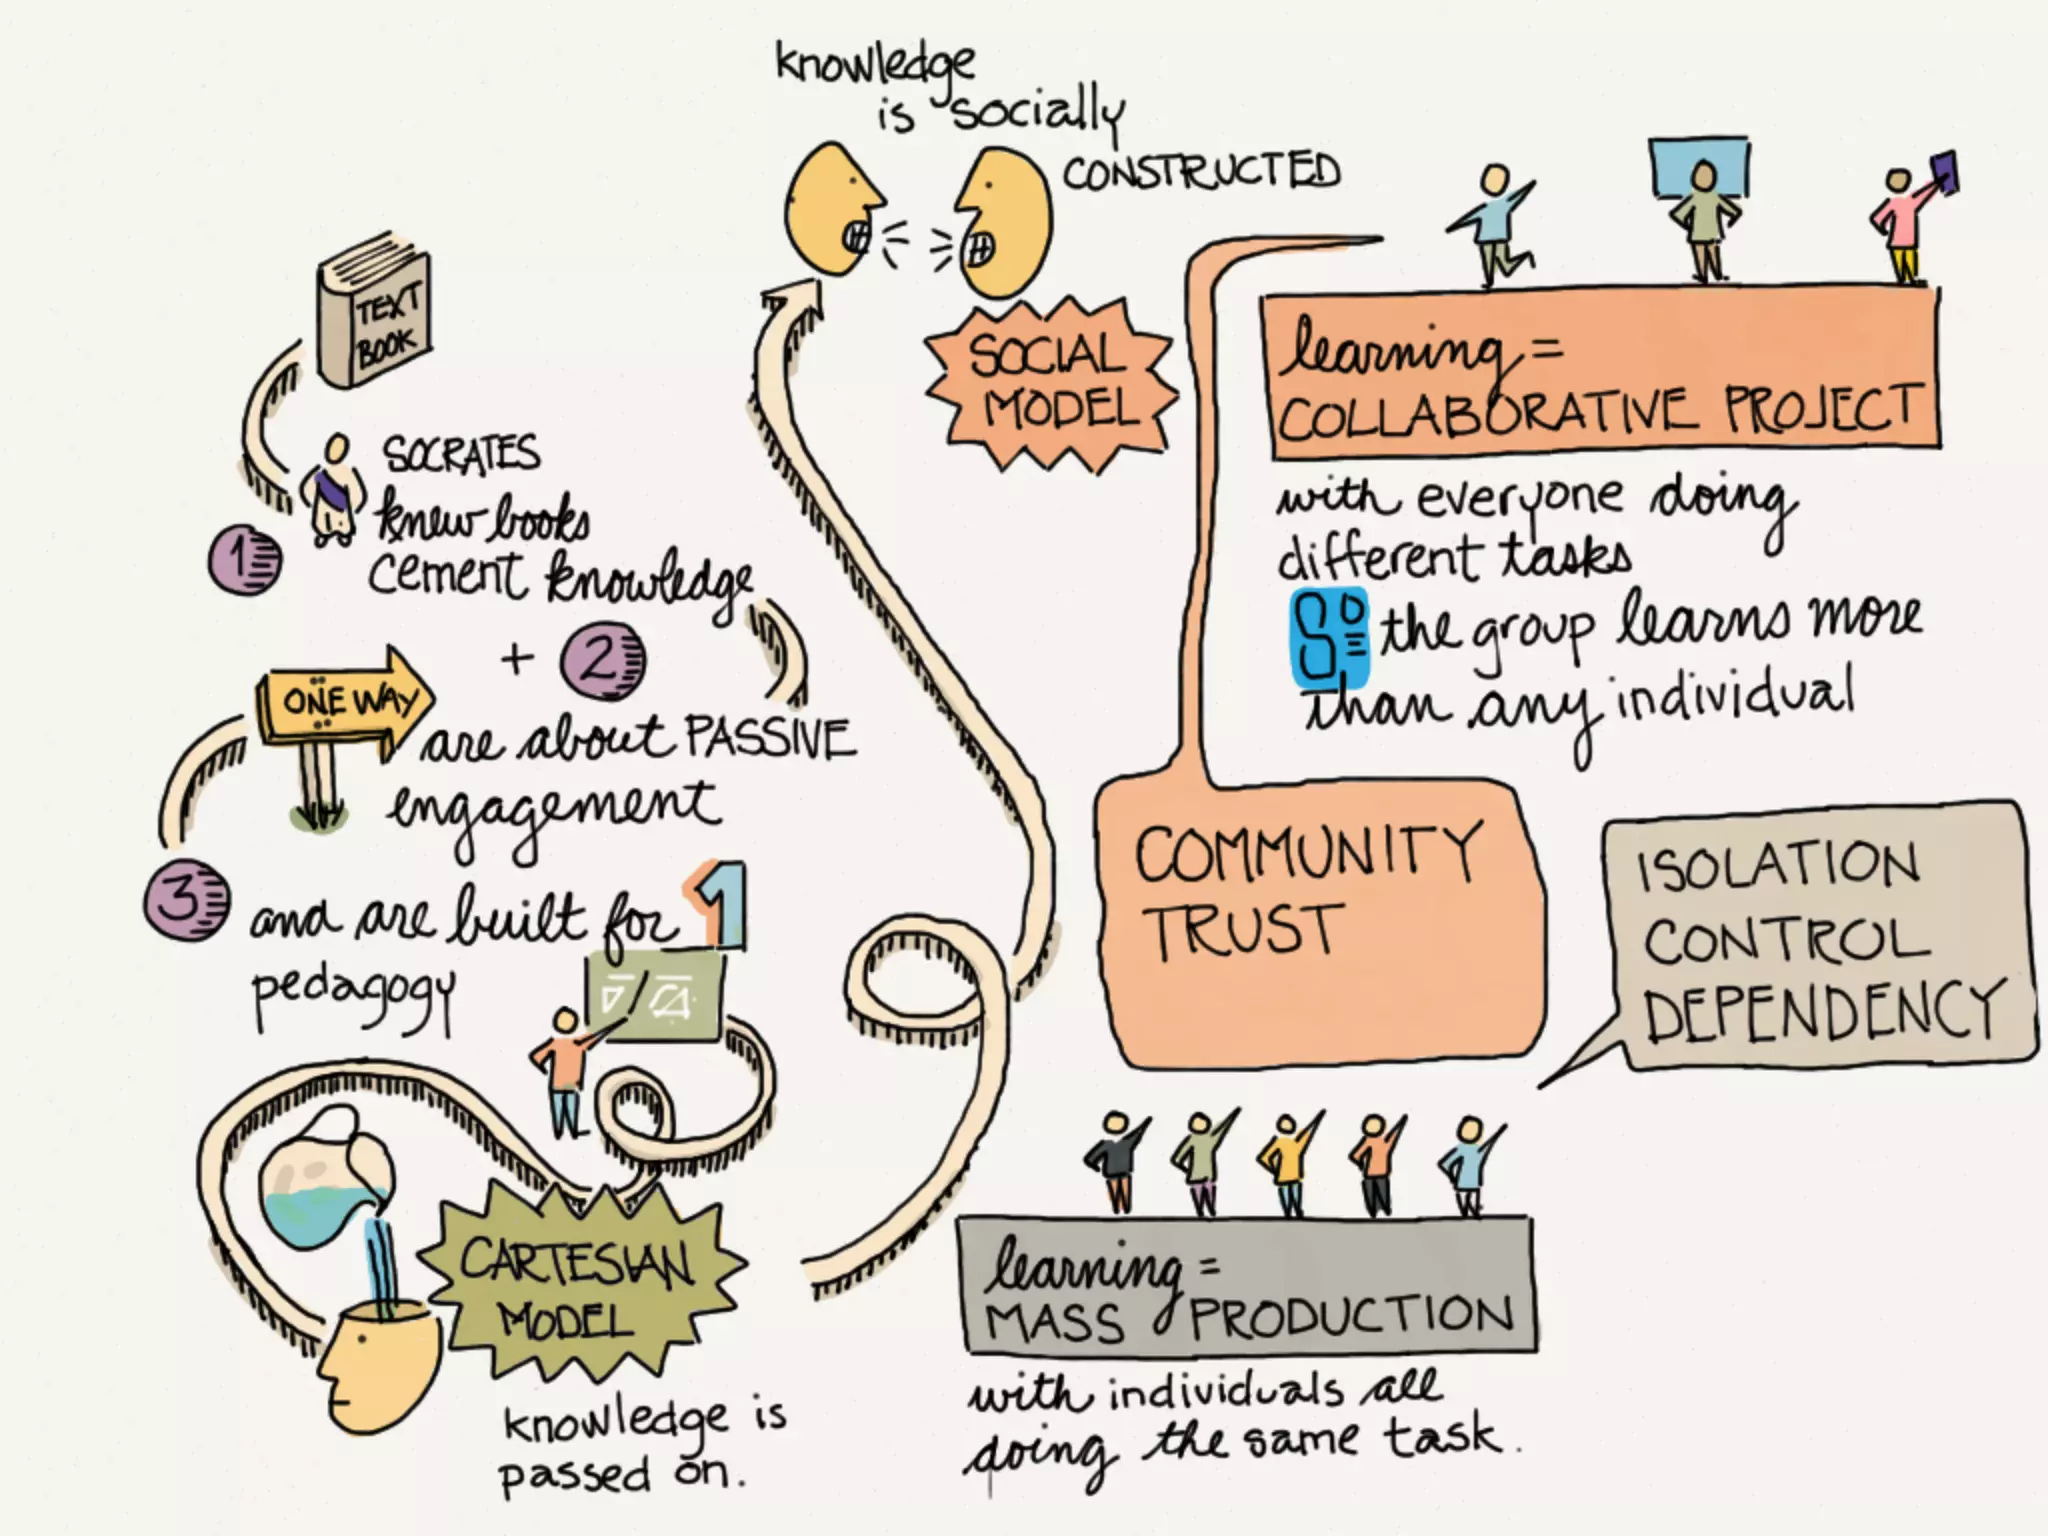 knowledge
is socially
CONSTRUCTED
TEXT
BOOK
SOCIAL
MODEL
learning =
COLLABORATIVE PROJECT
with everyone doing
different tasks
So the group learns more
than any individual
1
SOCRATES
knew books
cement knowledge
+ 2
ONE WAY
are about PASSIVE
engagement
3
and are built for 1
pedagogy
COMMUNITY
TRUST
ISOLATION
CONTROL
DEPENDENCY
CARTESIAN
MODEL
knowledge is
passed on.
learning =
MASS PRODUCTION
with individuals all
doing the same task.